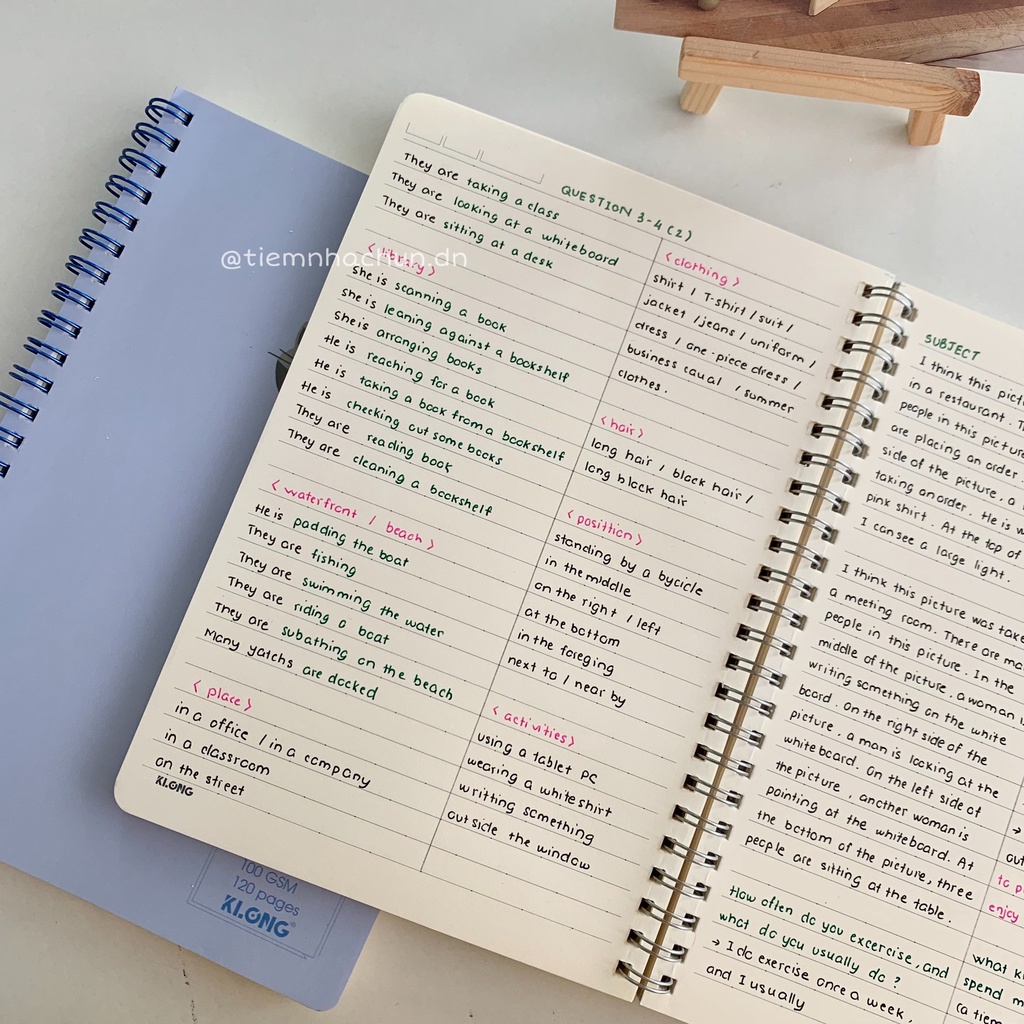 @tiemnhachun.dn
QUESTION 3-4 (2)
They are taking a class
They are looking at a whiteboard
They are sitting at a desk
< library >
She is scanning a book
She is leaning against a bookshelf
She is arranging books
He is reaching for a book
He is taking a book from a bookshelf
He is checking out some books
They are reading book
They are cleaning a bookshelf
< waterfront / beach >
He is padding the boat
They are fishing
They are swimming the water
They are riding a boat
They are subathing on the beach
Many yatchs are docked
< place >
in a office / in a company
in a classroom
on the street
KLONG
< clothing >
shirt / T-shirt / suit /
jacket / jeans / uniform /
dress / one-piece dress /
business caual / summer
clothes.
< hair >
long hair / black hair /
long black hair
< posittion >
standing by a bycicle
in the middle
on the right / left
at the bottom
in the foreging
next to / near by
< activities >
using a tablet PC
wearing a white shirt
writting something
out side the window
SUBJECT
I think this pict
in a restaurant. T
people in this picture
are placing an order
side of the picture, a
taking an order. He is w
pink shirt. At the top of
I can see a large light.
I think this picture was take
a meeting room. There are ma
people in this picture. In the
middle of the picture, a woman is
writing something on the white
board. On the right side of the
picture, a man is looking at the
white board. On the left side of
the picture, another woman is
pointing at the whiteboard. At
the bottom of the picture, three
people are sitting at the table.
How often do you excercise, and
what do you usually do?
→ I do exercise once a week,
and I usually
→
out
to p
enjoy
what k
spend m
(a tiem
100 GSM
120 pages
KLONG